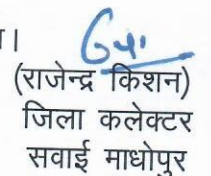 ा।
(राजेन्द्र किशन)
जिला कलेक्टर
सवाई माधोपुर